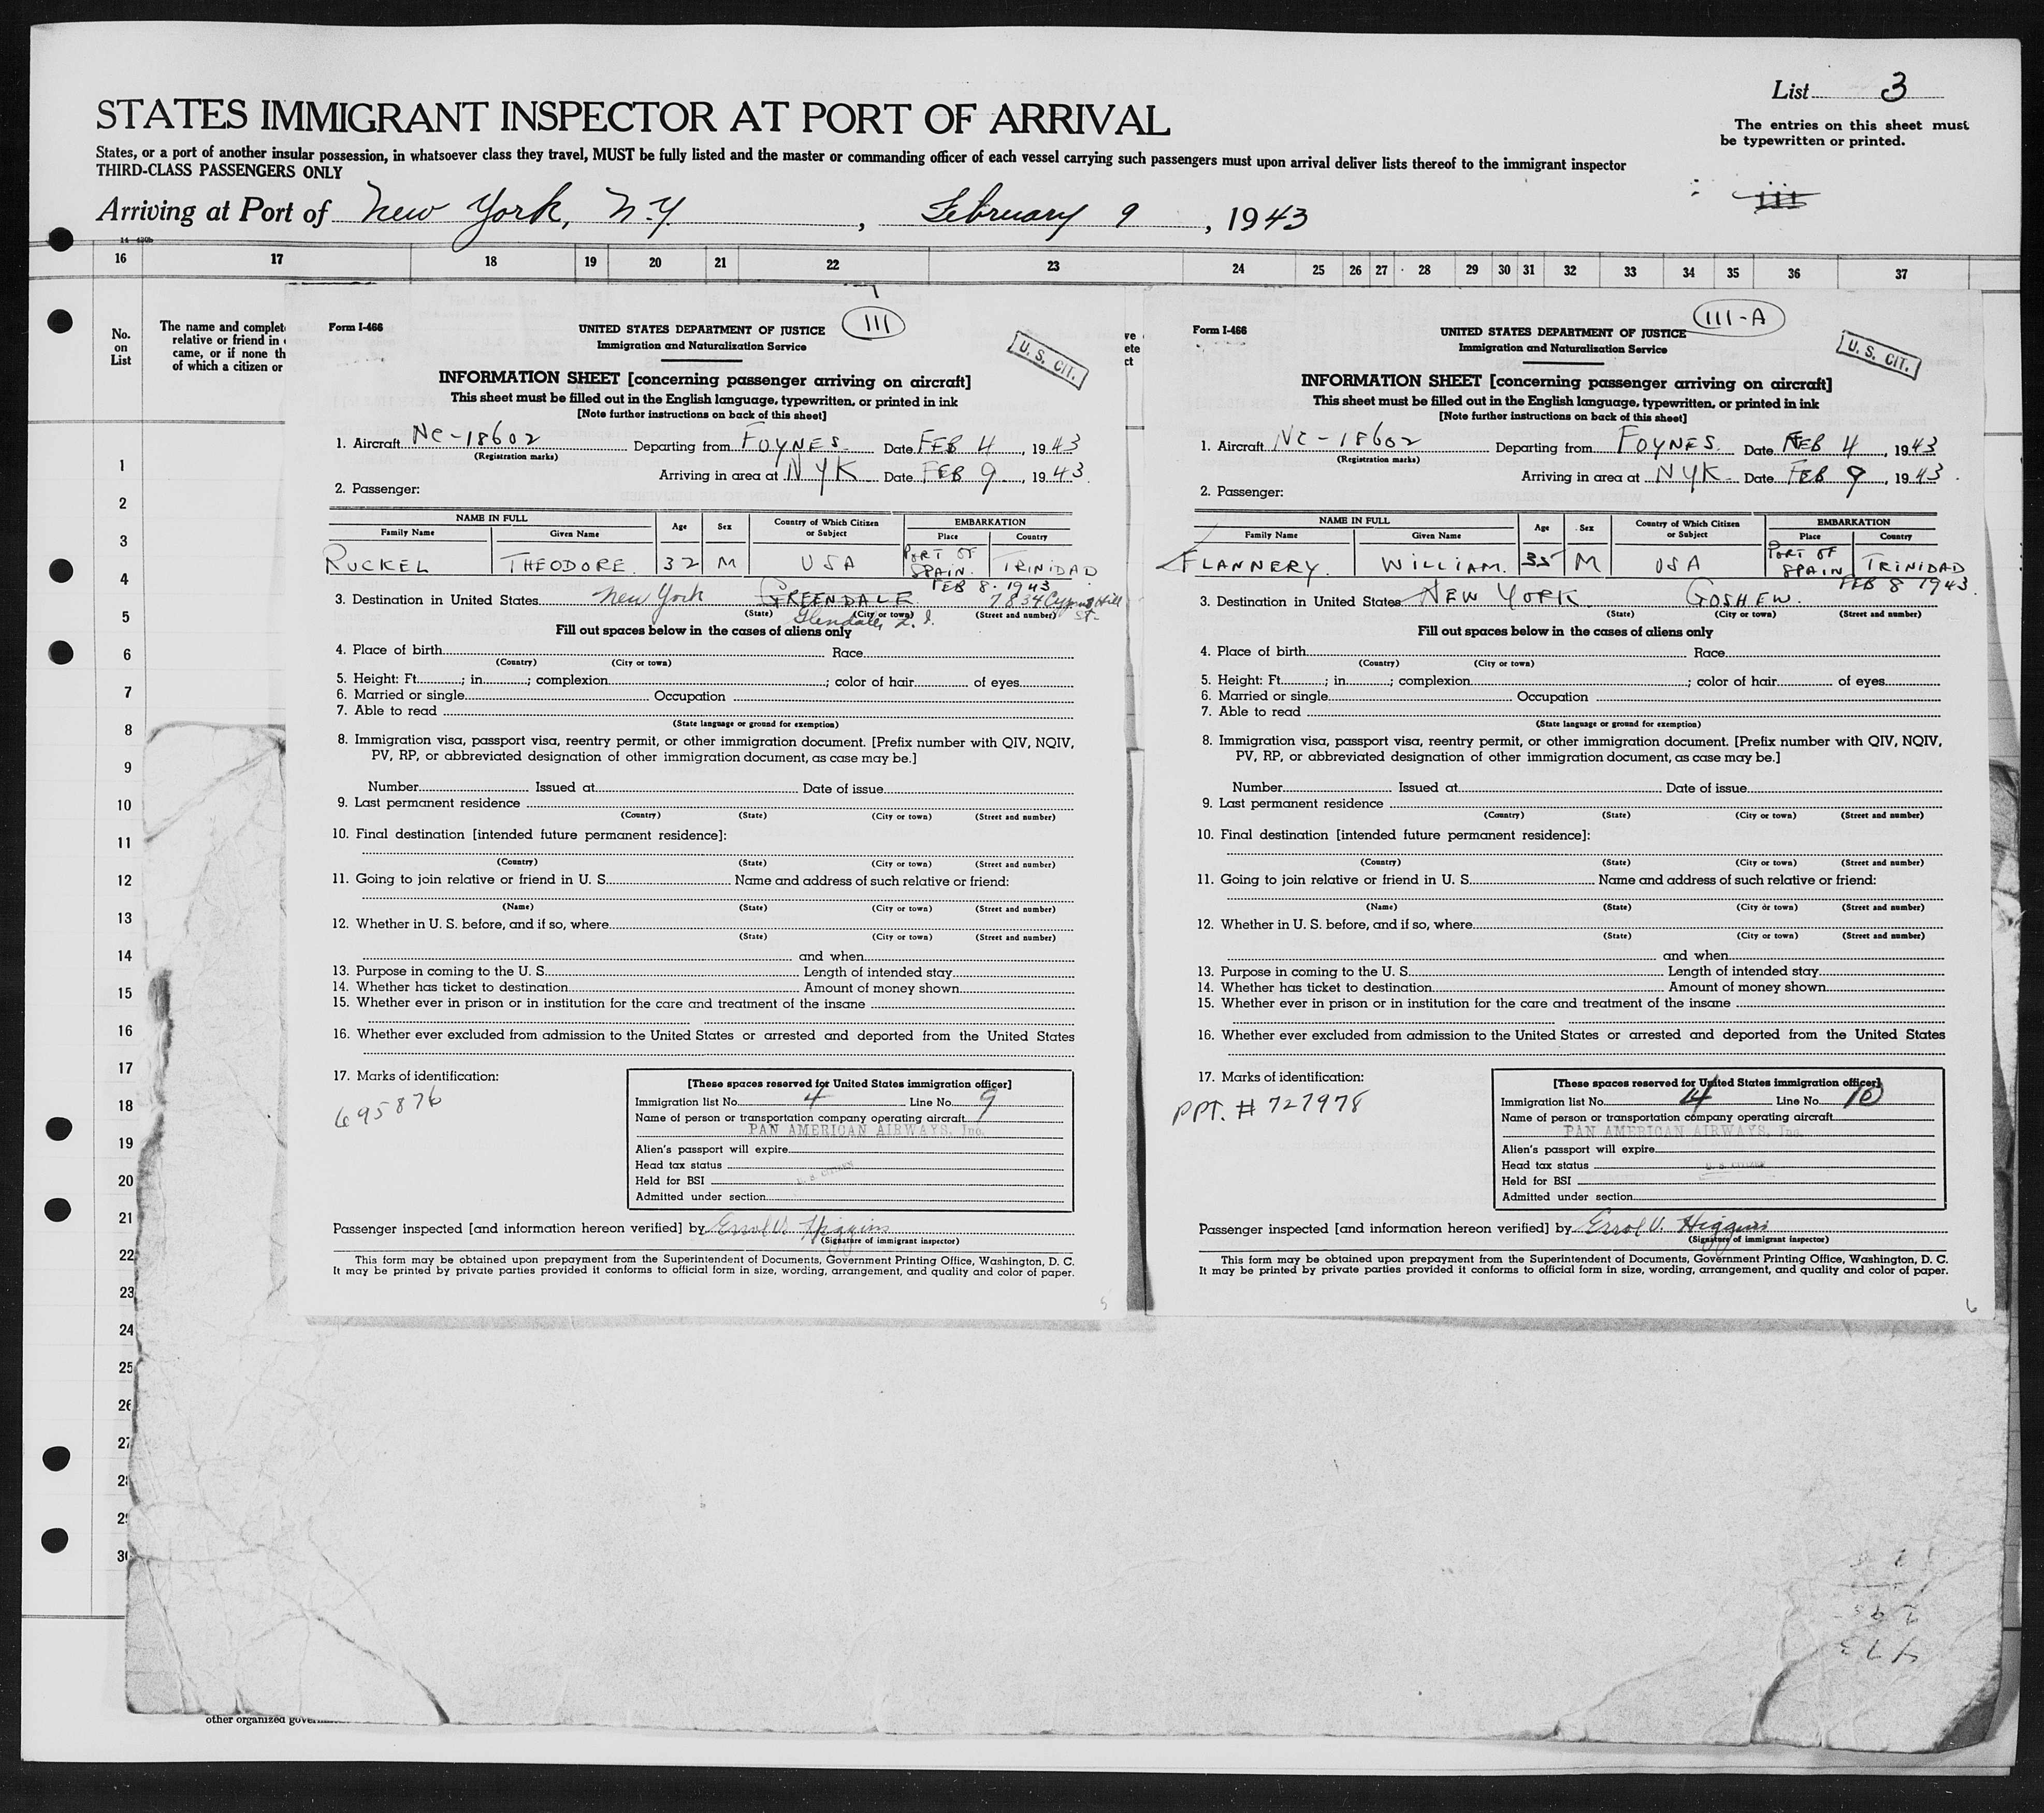 List 3
STATES IMMIGRANT INSPECTOR AT PORT OF ARRIVAL
The entries on this sheet must
be typewritten or printed.
States, or a port of another insular possession, in whatsoever class they travel, MUST be fully listed and the master or commanding officer of each vessel carrying such passengers must upon arrival deliver lists thereof to the immigrant inspector
THIRD-CLASS PASSENGERS ONLY
iii
Arriving at Port of New York, N.Y. , February 9 , 1943
16 17 18 19 20 21 22 23 24 25 26 27 28 29 30 31 32 33 34 35 36 37
No.
on
List
The name and complete
relative or friend in
came, or if none th
of which a citizen or
1
2
3
4
5
6
7
8
9
10
11
12
13
14
15
16
17
18
19
20
21
22
23
24
25
26
27
28
29
30
other organized
Form I-466
UNITED STATES DEPARTMENT OF JUSTICE
III
Immigration and Naturalization Service
U. S. CIT.
INFORMATION SHEET [concerning passenger arriving on aircraft]
This sheet must be filled out in the English language, typewritten, or printed in ink
[Note further instructions on back of this sheet]
1. Aircraft NC-18602 Departing from FOYNES. Date FEB 4, 1943
(Registration marks)
Arriving in area at NYK Date FEB 9, 1943.
2. Passenger:
NAME IN FULL Age Sex Country of Which Citizen or Subject EMBARKATION
Family Name Given Name Place Country
RUCKEL THEODORE. 32 M USA PORT OF SPAIN. TRINIDAD
FEB 8. 1943
3. Destination in United States New York GREENDALE 7834 Cypress Hill St.
(State) (City or town) (Street and number)
Glendale, L. I.
Fill out spaces below in the cases of aliens only
4. Place of birth Race
(Country) (City or town)
5. Height: Ft. ; in. ; complexion ; color of hair of eyes
6. Married or single Occupation
7. Able to read
(State language or ground for exemption)
8. Immigration visa, passport visa, reentry permit, or other immigration document. [Prefix number with QIV, NQIV,
PV, RP, or abbreviated designation of other immigration document, as case may be.]
Number Issued at Date of issue
9. Last permanent residence
(Country) (State) (City or town) (Street and number)
10. Final destination [intended future permanent residence]:
(Country) (State) (City or town) (Street and number)
11. Going to join relative or friend in U. S. Name and address of such relative or friend:
(Name) (State) (City or town) (Street and number)
12. Whether in U. S. before, and if so, where
(State) (City or town) (Street and number)
and when
13. Purpose in coming to the U. S. Length of intended stay
14. Whether has ticket to destination Amount of money shown
15. Whether ever in prison or in institution for the care and treatment of the insane
16. Whether ever excluded from admission to the United States or arrested and deported from the United States
17. Marks of identification:
695876
[These spaces reserved for United States immigration officer]
Immigration list No. 4 Line No. 9
Name of person or transportation company operating aircraft
PAN AMERICAN AIRWAYS, Inc.
Alien's passport will expire
Head tax status
U. S. CITIZEN
Held for BSI
Admitted under section
Passenger inspected [and information hereon verified] by Errol V. Higgins
(Signature of immigrant inspector)
This form may be obtained upon prepayment from the Superintendent of Documents, Government Printing Office, Washington, D. C.
It may be printed by private parties provided it conforms to official form in size, wording, arrangement, and quality and color of paper.
5
Form I-466
UNITED STATES DEPARTMENT OF JUSTICE
III-A
Immigration and Naturalization Service
U. S. CIT.
INFORMATION SHEET [concerning passenger arriving on aircraft]
This sheet must be filled out in the English language, typewritten, or printed in ink
[Note further instructions on back of this sheet]
1. Aircraft NC-18602 Departing from FOYNES. Date FEB 4, 1943
(Registration marks)
Arriving in area at NYK. Date FEB 9, 1943.
2. Passenger:
NAME IN FULL Age Sex Country of Which Citizen or Subject EMBARKATION
Family Name Given Name Place Country
FLANNERY. WILLIAM. 35 M USA PORT OF SPAIN TRINIDAD
FEB 8 1943.
3. Destination in United States NEW YORK GOSHEW.
(State) (City or town) (Street and number)
Fill out spaces below in the cases of aliens only
4. Place of birth Race
(Country) (City or town)
5. Height: Ft. ; in. ; complexion ; color of hair of eyes
6. Married or single Occupation
7. Able to read
(State language or ground for exemption)
8. Immigration visa, passport visa, reentry permit, or other immigration document. [Prefix number with QIV, NQIV,
PV, RP, or abbreviated designation of other immigration document, as case may be.]
Number Issued at Date of issue
9. Last permanent residence
(Country) (State) (City or town) (Street and number)
10. Final destination [intended future permanent residence]:
(Country) (State) (City or town) (Street and number)
11. Going to join relative or friend in U. S. Name and address of such relative or friend:
(Name) (State) (City or town) (Street and number)
12. Whether in U. S. before, and if so, where
(State) (City or town) (Street and number)
and when
13. Purpose in coming to the U. S. Length of intended stay
14. Whether has ticket to destination Amount of money shown
15. Whether ever in prison or in institution for the care and treatment of the insane
16. Whether ever excluded from admission to the United States or arrested and deported from the United States
17. Marks of identification:
PPT. # 727978
[These spaces reserved for United States immigration officer]
Immigration list No. 4 Line No. 10
Name of person or transportation company operating aircraft
PAN AMERICAN AIRWAYS, Inc.
Alien's passport will expire
Head tax status
U. S. CITIZEN
Held for BSI
Admitted under section
Passenger inspected [and information hereon verified] by Errol V. Higgins
(Signature of immigrant inspector)
This form may be obtained upon prepayment from the Superintendent of Documents, Government Printing Office, Washington, D. C.
It may be printed by private parties provided it conforms to official form in size, wording, arrangement, and quality and color of paper.
6